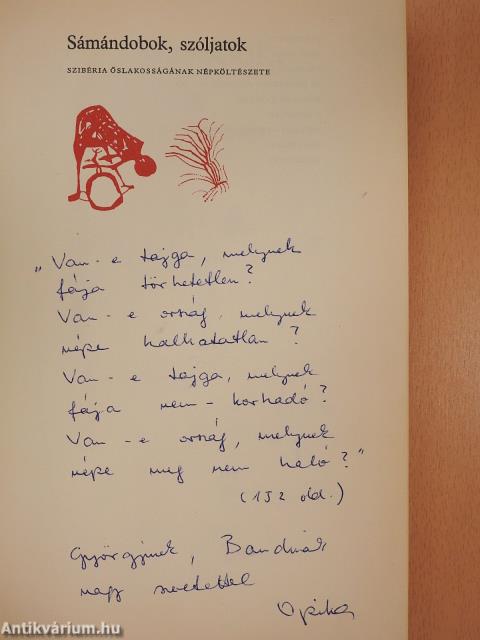 Sámándobok, szóljatok
SZIBÉRIA ŐSLAKOSSÁGÁNAK NÉPKÖLTÉSZETE
„Van-e tajga, melynek
fája törhetetlen?
Van-e ország, melynek
népe halhatatlan?
Van-e tajga, melynek
fája nem-korhadó?
Van-e ország, melynek
népe meg nem haló?"
(152 old.)
Györgyinek, Bandinak
nagy szeretettel
Antikvárium.hu